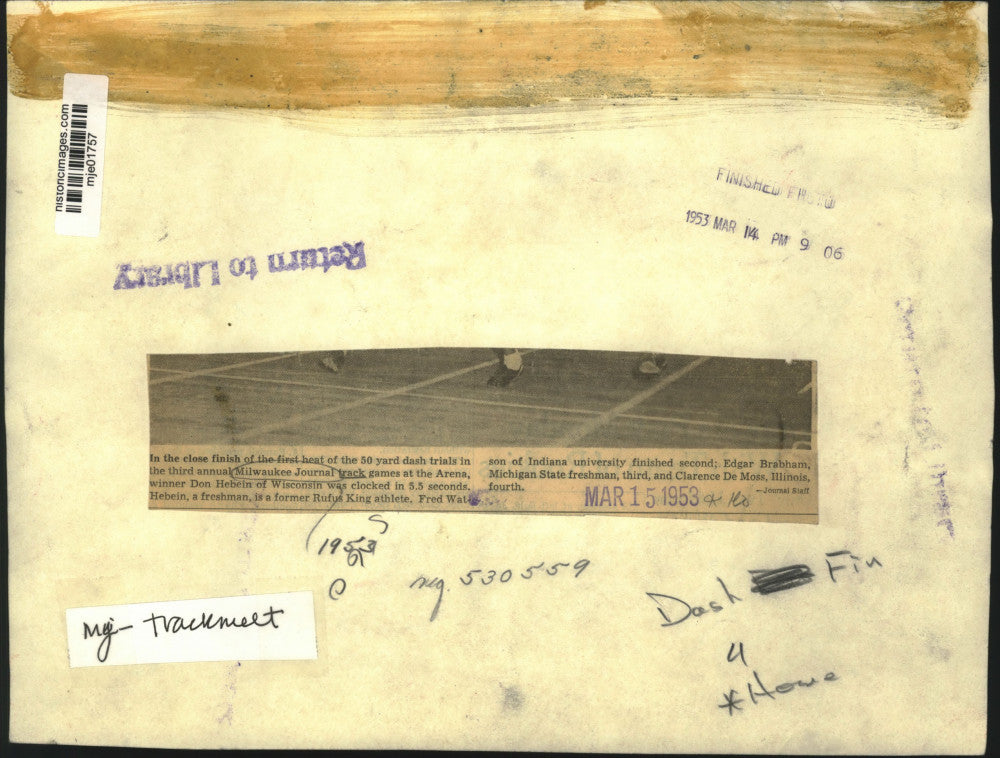 historicimages.com
mje01757
FINISHED PHOTO
1953 MAR 14 PM 9 06
Return to Library
In the close finish of the first heat of the 50 yard dash trials in
the third annual Milwaukee Journal track games at the Arena,
winner Don Hebein of Wisconsin was clocked in 5.5 seconds.
Hebein, a freshman, is a former Rufus King athlete. Fred Wat-
son of Indiana university finished second; Edgar Brabham,
Michigan State freshman, third, and Clarence De Moss, Illinois,
fourth.
—Journal Staff
MAR 15 1953
S
1953
C
neg. 530559
Dash Fin
4
*Home
mje- trackmeet